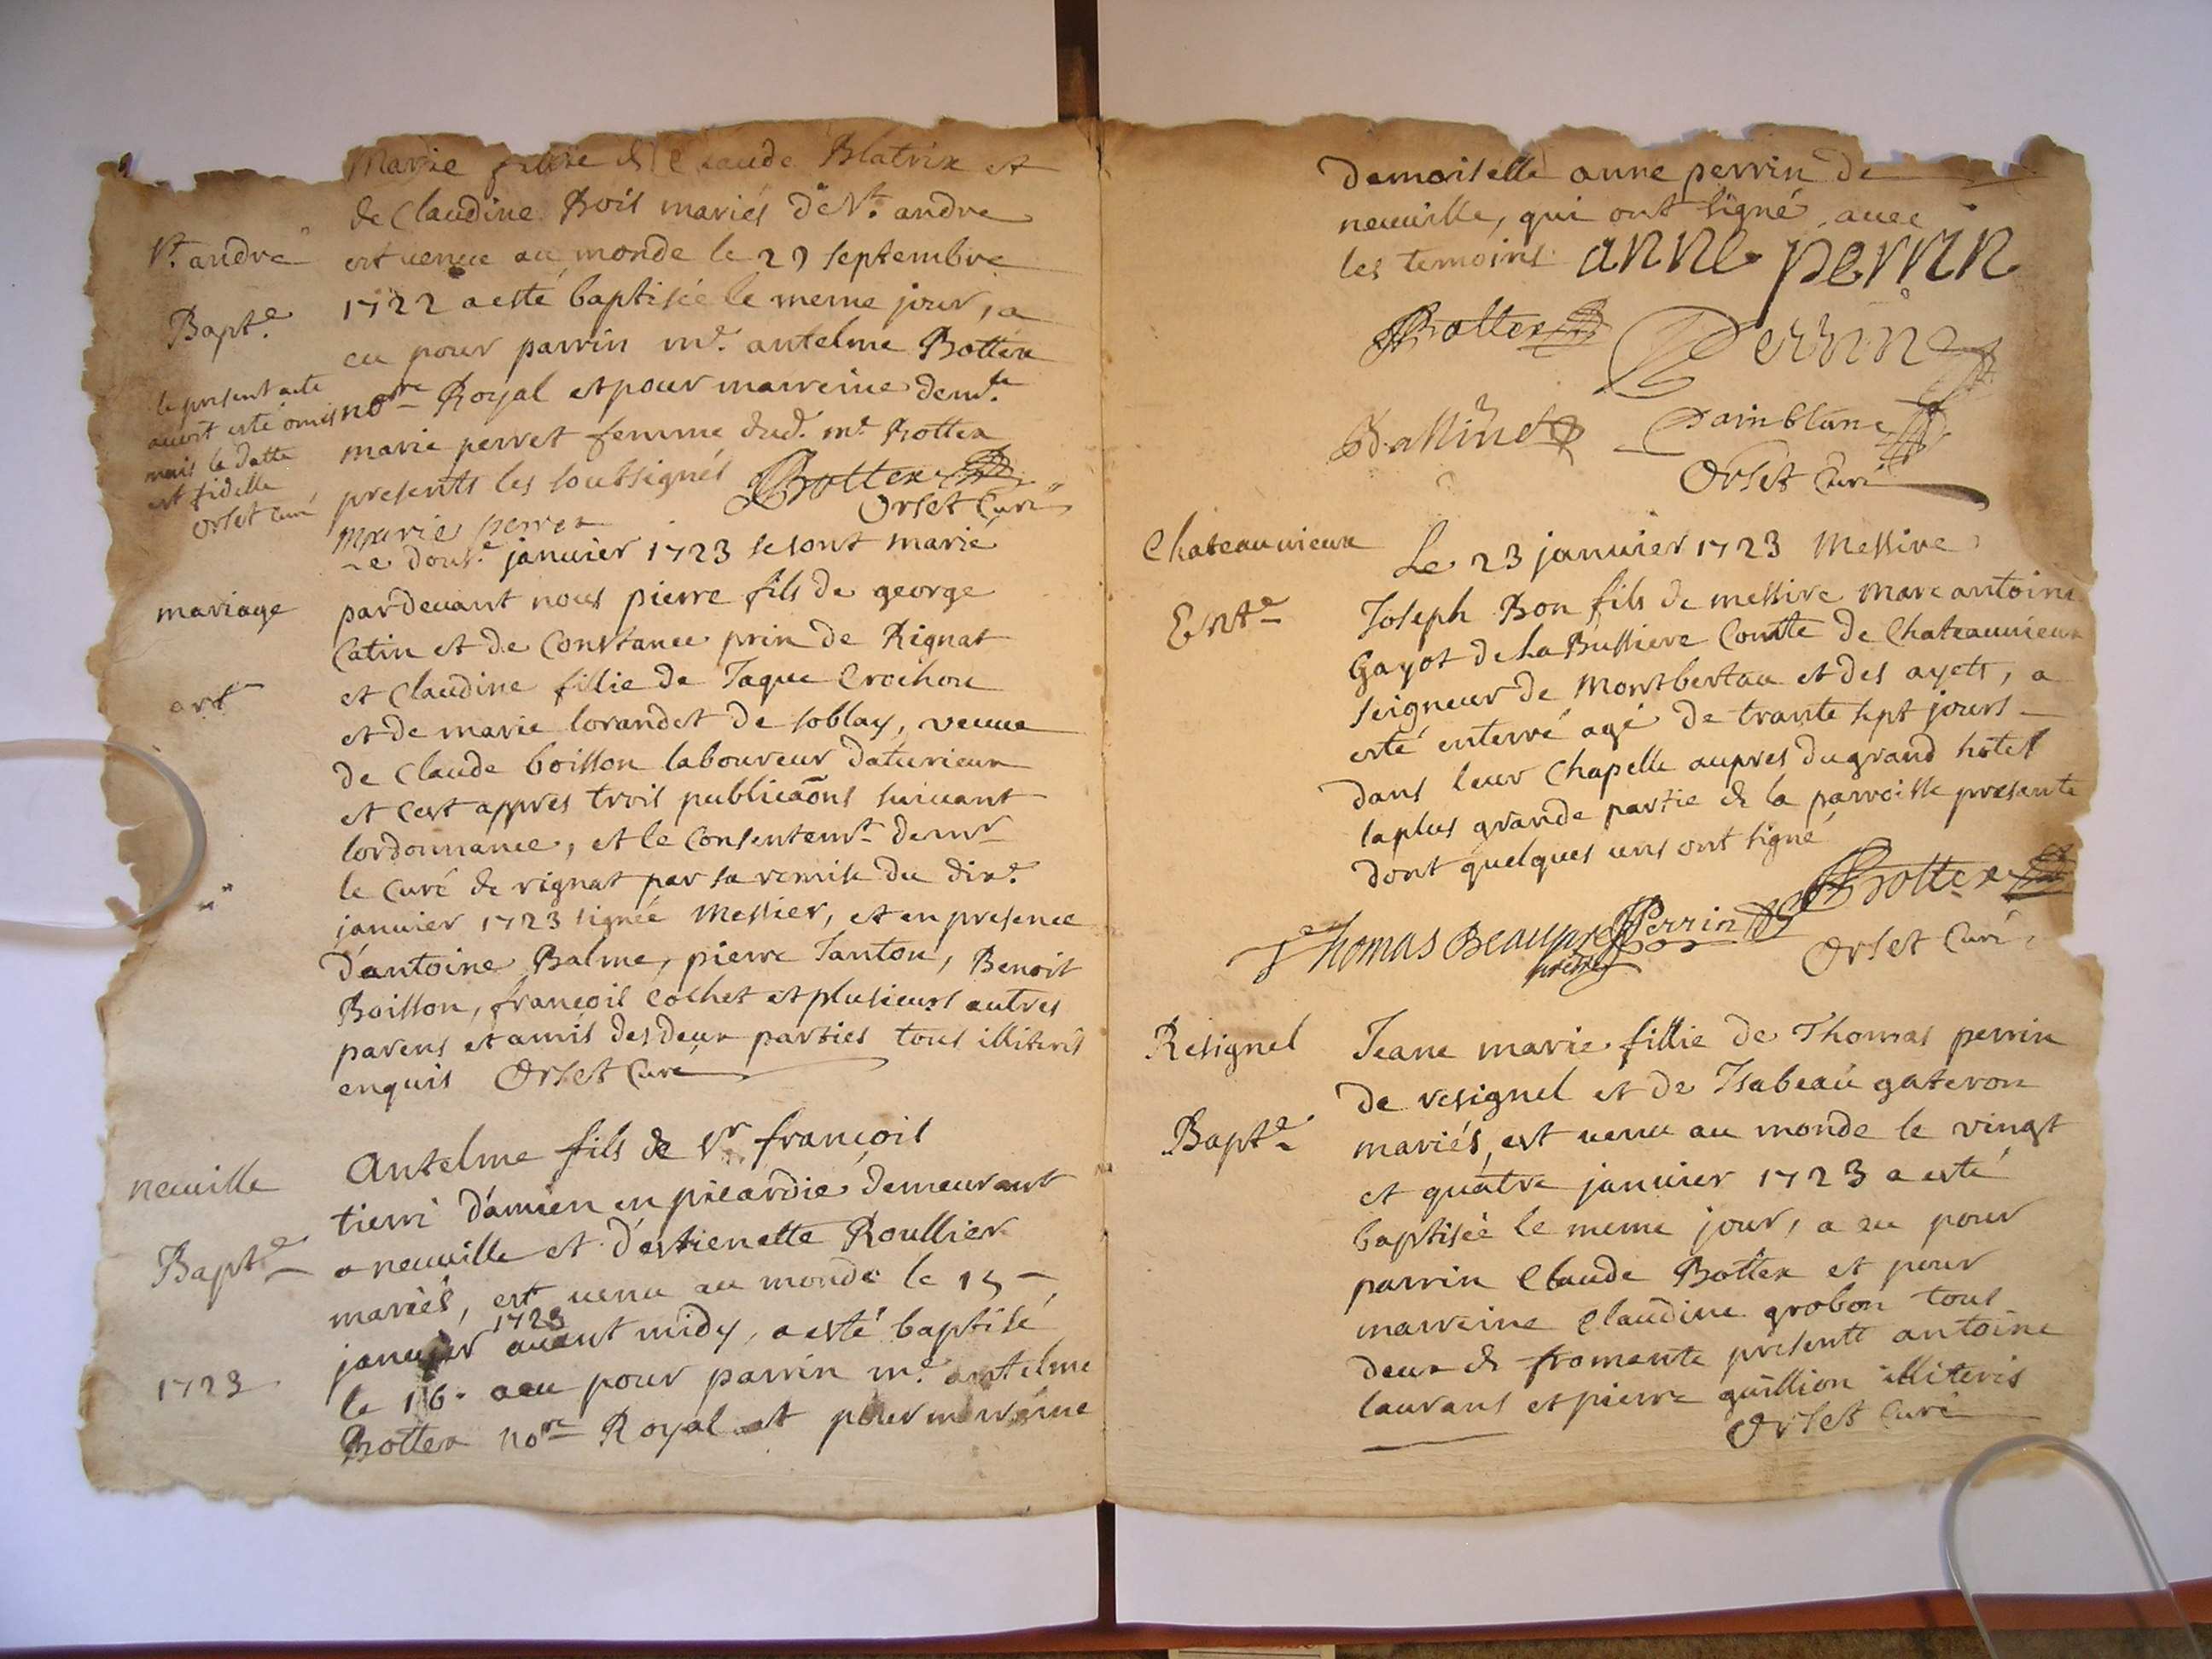 Marie fillie de Claude Blatrix et
de Claudine Bois mariés de St. andre
St. andre
est venue au monde le 29 septembre
1722 a esté baptisée le meme jour, a
Bapt.e
eu pour parrin me. antelme Bottex
nore Royal et pour marreine demlle
marie perret femme dud. me Bottex
presents les soubsignés Bottex
Orset Curé
marie perret
le present acte
avoit esté omis
mais la datte
est fidelle
Orset Curé
Le douse janvier 1723 se sont marié
mariage
pardevant nous pierre fils de george
Catin et de Constance prin de Rignat
et Claudine fillie de Jaque Crochon
et de marie lorandet de soblay, veuve
de Claude boisson laboureur daturieux
et cest appres trois publicaōns suivant
lordonnance, et le Consentemt de mr
le Curé de rignat par sa remise du dixe
janvier 1723 signée Messier, et en presence
d'antoine Balme, pierre Tanton, Benoit
Boisson, françois Cochet et plusieurs autres
parens et amis des deux parties tous illiterés
enquis Orset Curé
neuville
Antelme fils de Sr françois
tierri d'amien en picardie demeurant
Bapt.e
a neuville et d'estienette Roullier
mariés, est venu au monde le 15
1723
janvier avant midy, a esté baptisé
1723
le 16. a eu pour parrin me. antelme
Bottex nore Royal et pour marreine
demoiselle anne perrin de
neuville, qui ont signé avec
les temoins anne perrin
Bottex Perrin
Ballinet Painblanc
Orset Curé
Chateauvieux
Le 23 janvier 1723 Messire
Ent.e
Joseph Bon fils de messire Marc antoine
Gayot de La Bussiere Comte de Chateauvieux
seigneur de Montbertau et des ayets, a
esté enterré agé de trante sept jours
dans leur Chapelle aupres du grand hotel
la plus grande partie de la parroisse presente
dont quelques uns ont signé
Thomas Beaupré Perrin Bottex
prestre
Orset Curé
Resignel
Jeane marie fillie de Thomas perrin
de resignel et de Isabeau gateron
Bapt.e
mariés, est venu au monde le vingt
et quatre janvier 1723 a esté
baptisée le meme jour, a eu pour
parrin Claude Bottex et pour
marreine Claudine grobon tous
deux de fromente presents antoine
laurans et pierre guillion illiterés
Orset Curé